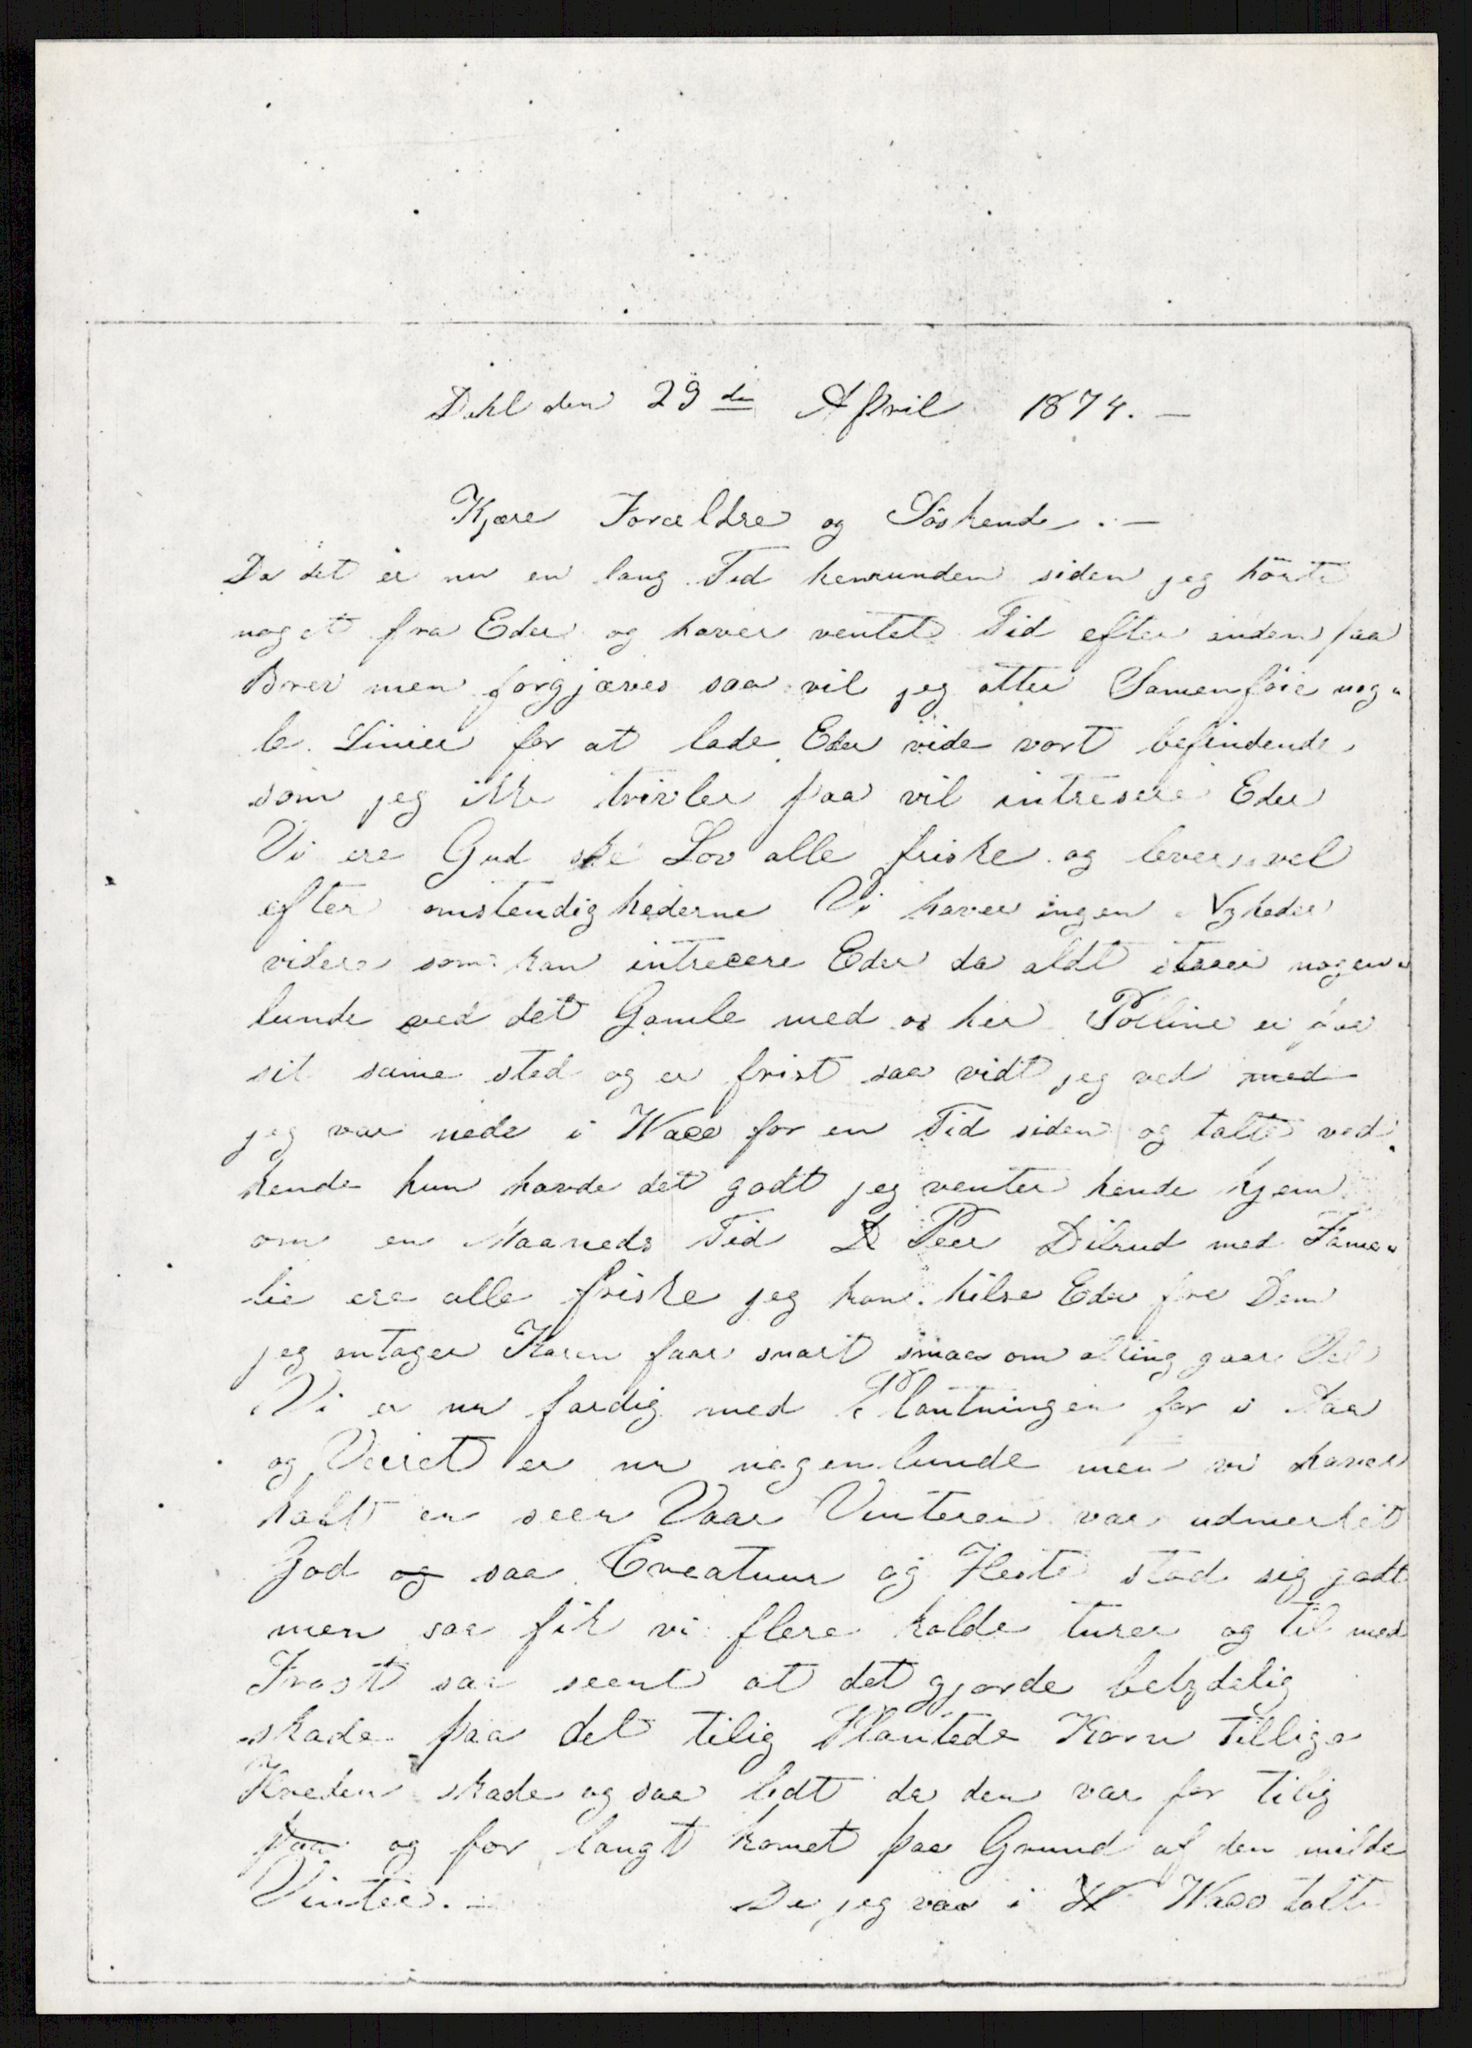 Dahl den 29de April 1874. —
Kjære Forældre og Söskende. —
Da det er nu en lang Tid henrunden siden jeg hörte
noget fra Eder og haver ventet Tid efter anden paa
Brev men forgjæves saa vil jeg atter Samenföie nog-
le Linier for at lade Eder vide vort befindende
som jeg ikke tvivler paa vil intresere Eder
Vi ere Gud ske Lov alle friske og lever vel
efter omstendighederne Vi haver ingen Nyheder
videre som kan intrecere Eder da aldt staar nogen-
lunde ved det Gamle med os her Polline er paa
sit same sted og er frist saa vidt jeg ved med
jeg var nede i Waco for en Tid siden og talte ved
hende hun havde det godt jeg venter hende hjem
om en Maaneds Tid D Peer Dilrud med Fame-
lie ere alle friske jeg kan hilse Eder fra Dem
jeg antager Karen faar snart smaa om alting gaar Vel
Vi er nu færdig med Plantningen for i Aar
og Veiret er nu nogenlunde men vi haver
haft en seen Vaar Vinteren var udmerket
God og saa Creatuur og Heste stod sig godt
men saa fik vi flere kolde turer og til med
Frost saa seent at det gjorde betydelig
skade paa det tilig Plantede Korn tillige
Hveden skade og saa lidt da den var for tilig
paa og for langt komet paa Grund af den milde
Vinter. — Da jeg var i W Waco talte